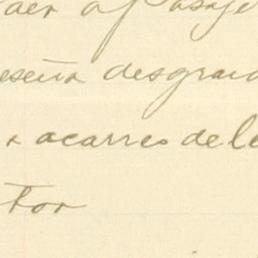 aer el pasaje
eseña desgrac
a acarreo de le
tor